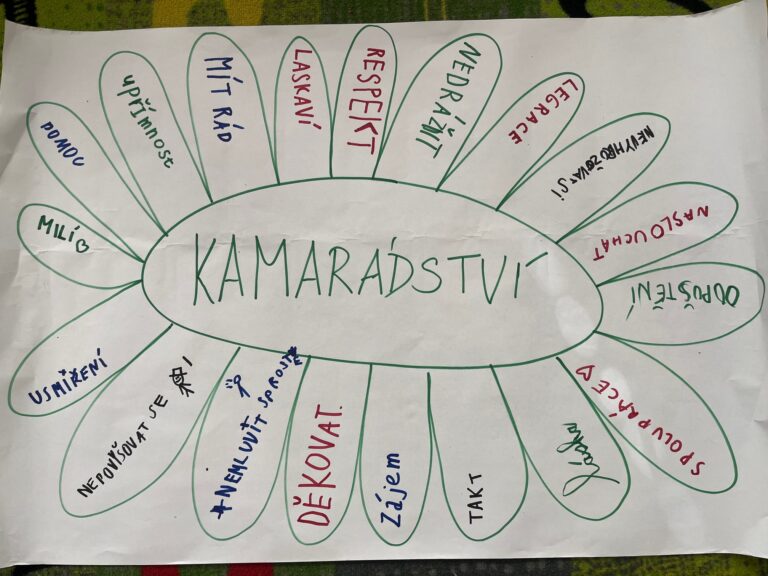 KAMARÁDSTVÍ
MILÍ
POMOC
upřímnost
MÍT RÁD
LASKAVÍ
RESPEKT
NEDRÁŽNIT
LEGRACE
NEVYHROŽOVAT SI
NASLOUCHAT
ODPUŠTĚNÍ
SPOLUPRÁCE
Láska
TAKT
Zájem
DĚKOVAT.
NEMLUVIT SPROSTĚ
NEPOVYŠOVAT SE
USMÍŘENÍ